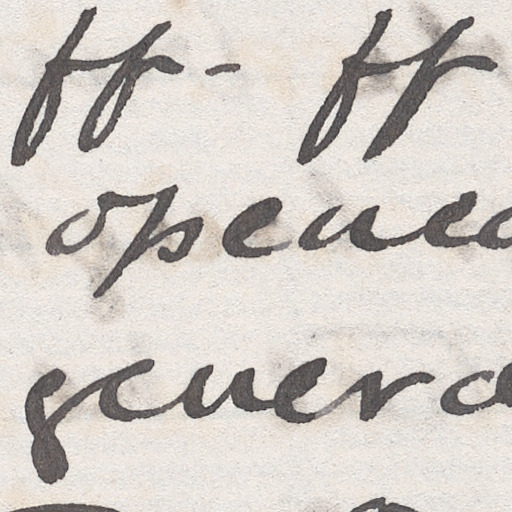 ff - ff
opened
genera